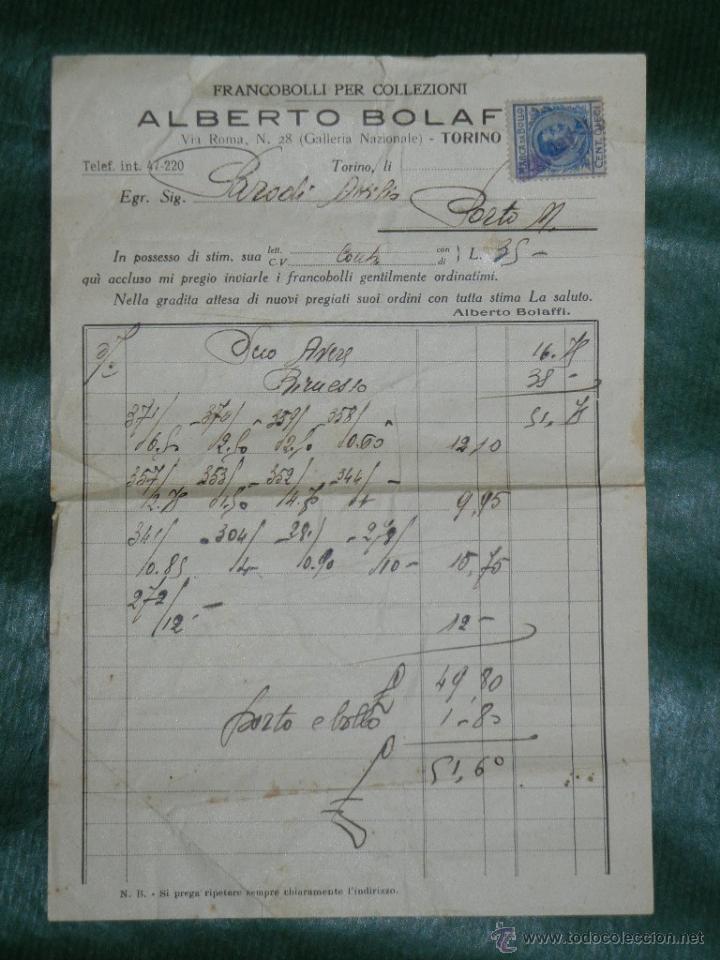 FRANCOBOLLI PER COLLEZIONI
ALBERTO BOLAF
Via Roma, N. 28 (Galleria Nazionale) - TORINO
MARCA DA BOLLO
Telef. int. 47-220 Torino, li
Egr. Sig. Parodi
Porto M.
In possesso di stim. sua lett. C.V. con di L. 35 -
quì accluso mi pregio inviarle i francobolli gentilmente ordinatimi.
Nella gradita attesa di nuovi pregiati suoi ordini con tutta stima La saluto.
Alberto Bolaffi.
Suo Avere 16.
Rimesso
371/ - 374/ - 359/ 358/ 51,
/6.50 /2.50 /2.50 /0.60 12,10
357/ - 353/ - 352/ 344/ -
9,95
304/
/0.85 /0.90 /10 - 15,75
272/ -
/12 - 12 -
49,80
porto e bollo 1-80
51,60
N. B. - Si prega ripetere sempre chiaramente l'indirizzo.
todocoleccion
www.todocoleccion.com